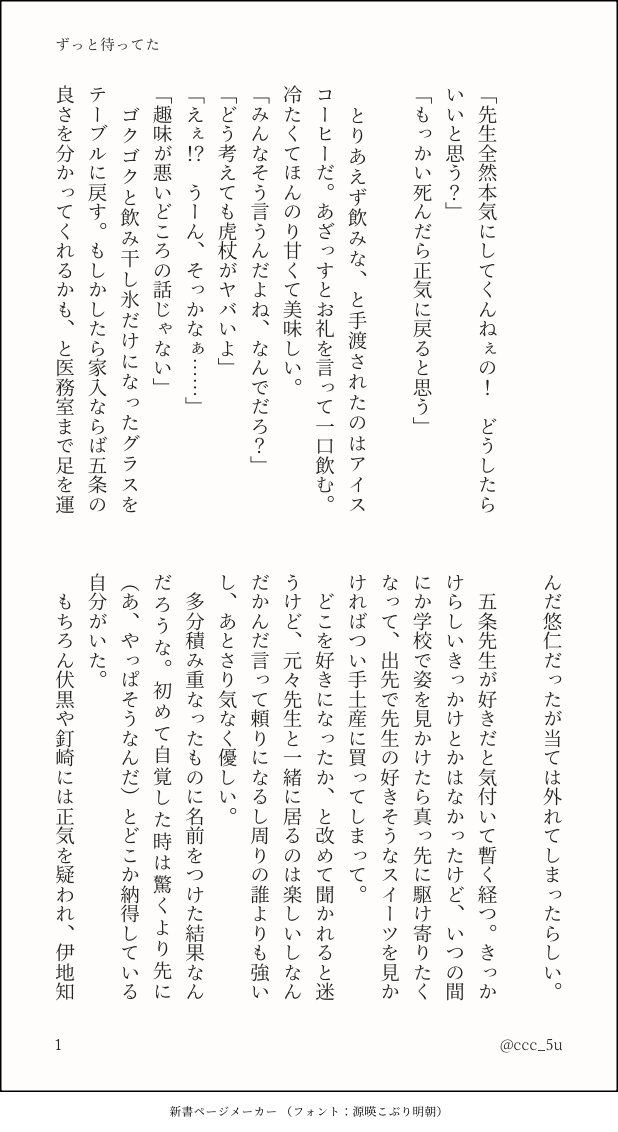 ずっと待ってた
「先生全然本気にしてくんねぇの！　どうしたら
いいと思う？」
「もっかい死んだら正気に戻ると思う」
　とりあえず飲みな、と手渡されたのはアイス
コーヒーだ。あざっすとお礼を言って一口飲む。
冷たくてほんのり甘くて美味しい。
「みんなそう言うんだよね、なんでだろ？」
「どう考えても虎杖がヤバいよ」
「えぇ!?　うーん、そっかなぁ……」
「趣味が悪いどころの話じゃない」
　ゴクゴクと飲み干し氷だけになったグラスを
テーブルに戻す。もしかしたら家入ならば五条の
良さを分かってくれるかも、と医務室まで足を運
んだ悠仁だったが当ては外れてしまったらしい。
　五条先生が好きだと気付いて暫く経つ。きっか
けらしいきっかけとかはなかったけど、いつの間
にか学校で姿を見かけたら真っ先に駆け寄りたく
なって、出先で先生の好きそうなスイーツを見か
ければつい手土産に買ってしまって。
　どこを好きになったか、と改めて聞かれると迷
うけど、元々先生と一緒に居るのは楽しいしなん
だかんだ言って頼りになるし周りの誰よりも強い
し、あとさり気なく優しい。
　多分積み重なったものに名前をつけた結果なん
だろうな。初めて自覚した時は驚くより先に
（あ、やっぱそうなんだ）とどこか納得している
自分がいた。
　もちろん伏黒や釘崎には正気を疑われ、伊地知
1
@ccc_5u
新書ページメーカー（フォント：源暎こぶり明朝）